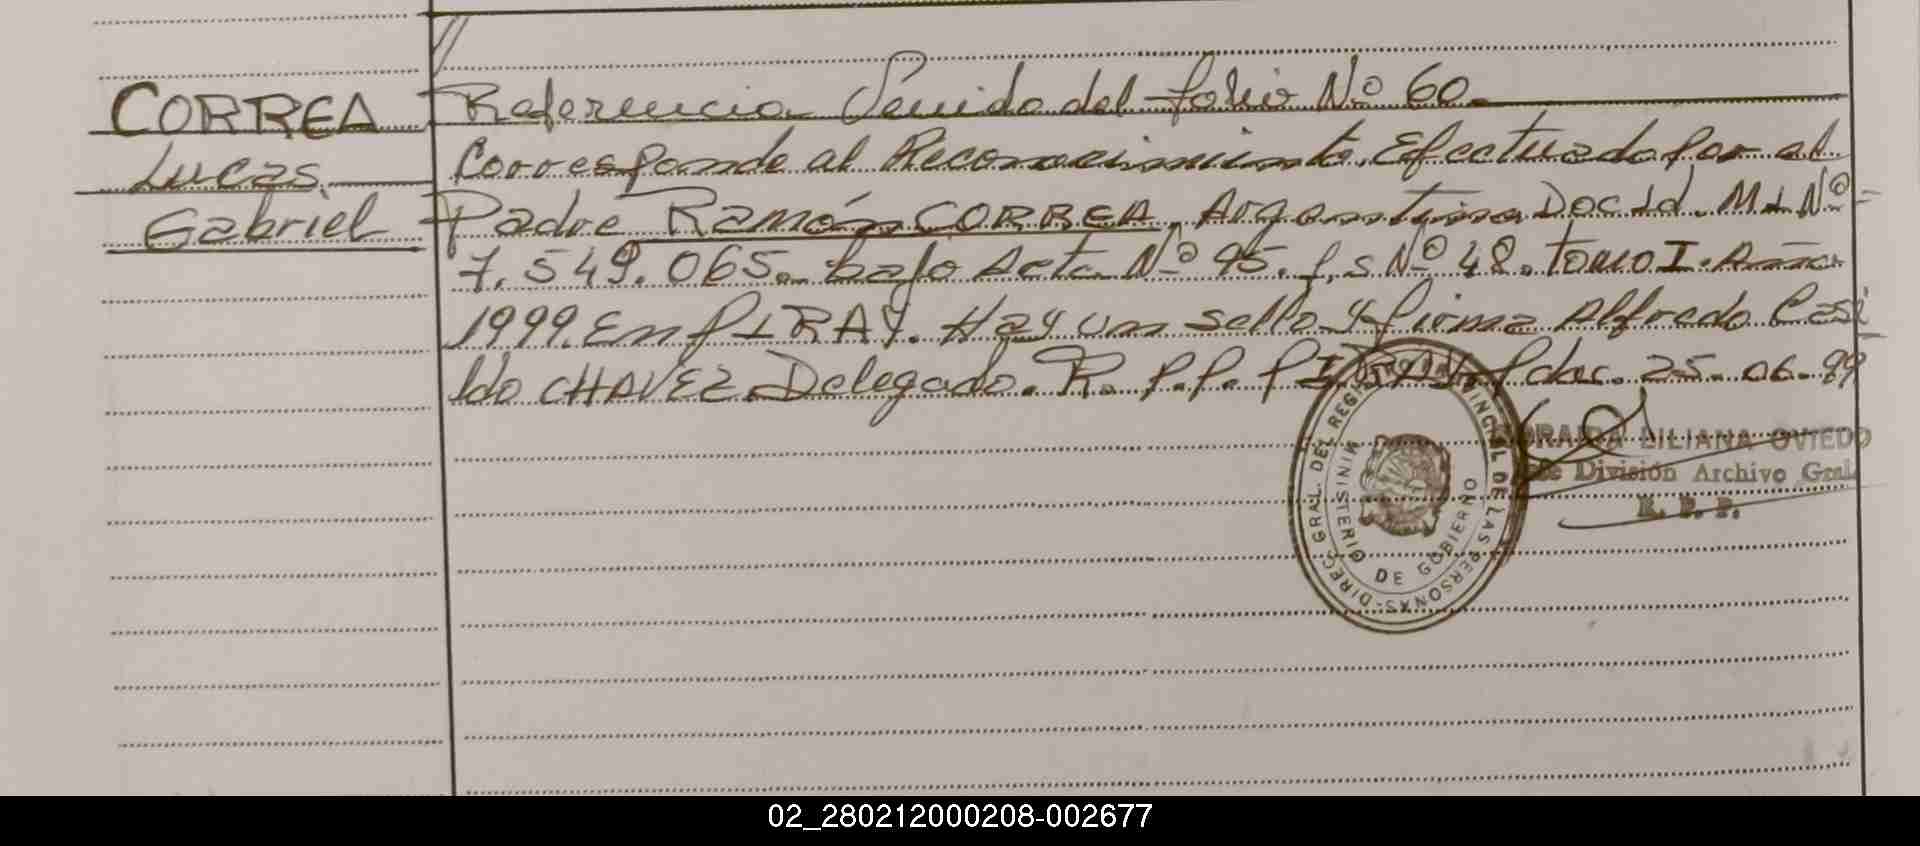 CORREA
Lucas
Gabriel
Referencia Venido del folio Nº 60.
Corresponde al Reconocimiento. Efectuado por el
Padre Ramón CORREA, Argentino Doc Id. M I Nº
7.549.065. bajo Acta Nº 95. f,s Nº 48. Tomo I. Año
1999. En PIRAY. Hay un sello y firma Alfredo Casi
ldo CHAVEZ Delegado. R. P. P. PIRAY. Pdas. 25-06-99
DIREC. GRAL. DEL REGISTRO PROVINCIAL DE LAS PERSONAS
MINISTERIO DE GOBIERNO
LILIANA OVIEDO
División Archivo Gral.
R. P. P.
02_280212000208-002677